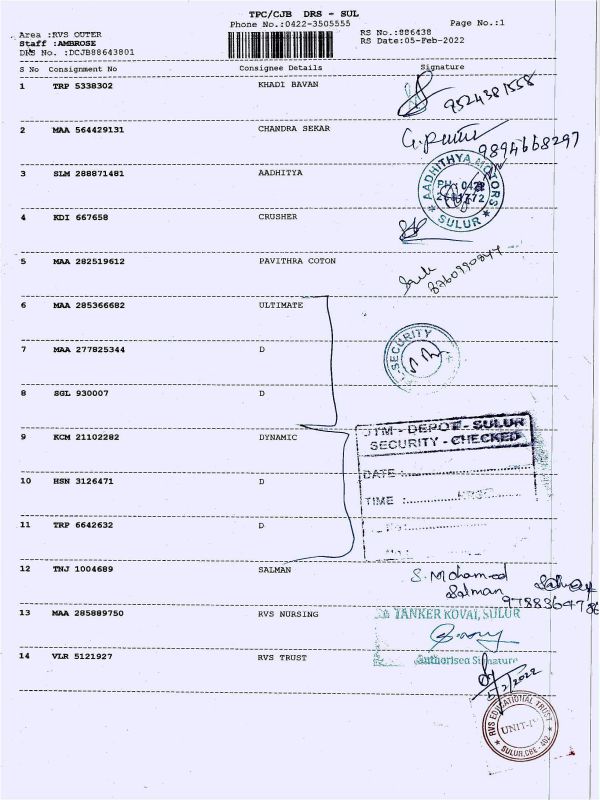 TPC/CJB DRS - SUL
Phone No.:0422-3505555
Page No.:1
Area :RVS OUTER
RS No.:886438
Staff :AMBROSE
RS Date:05-Feb-2022
DRS No. :DCJB88643801
S No Consignment No Consignee Details Signature
1 TRP 5338302 KHADI BAVAN
9524381558
2 MAA 564429131 CHANDRA SEKAR
9894668297
3 SLM 288871481 AADHITYA
AADHITHYA MOTORS
PH: 0422
SULUR
4 KDI 667658 CRUSHER
5 MAA 282519612 PAVITHRA COTON
8760990844
6 MAA 285366682 ULTIMATE
7 MAA 277825344 D
SECURITY
8 SGL 930007 D
9 KCM 21102282 DYNAMIC
DEPOT - SULUR
SECURITY - CHECKED
DATE :
10 HSN 3126471 D
TIME :
11 TRP 6642632 D
12 TNJ 1004689 SALMAN
S. Mohamed
Salman
9788364786
13 MAA 285889750 RVS NURSING
TANKER KOVAI, SULUR
14 VLR 5121927 RVS TRUST
Authorised Signature
5/2/2022
RVS EDUCATIONAL TRUST
UNIT-IV
SULUR, CBE - 402